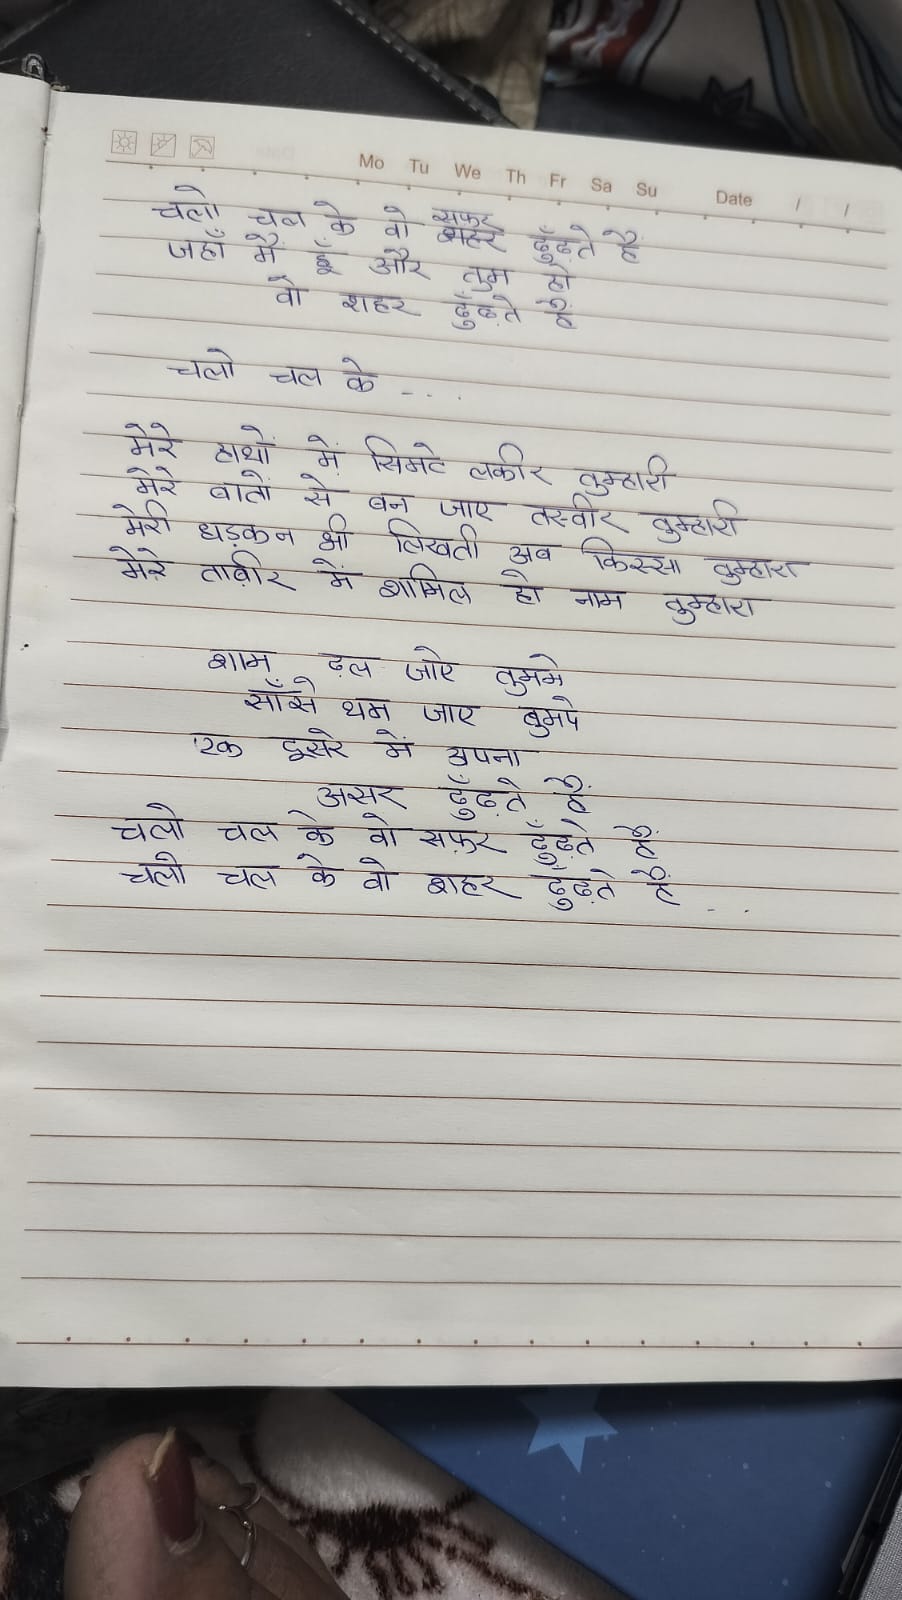 Mo Tu We Th Fr Sa Su Date / /
चलो चल के वो सफर ढूँढ़ते हैं
जहाँ मैं हूँ और तुम हो
वो शहर ढूँढ़ते हैं
चलो चल के ....
मेरे हाथों में सिमटे लकीर तुम्हारी
मेरे बातों से बन जाए तस्वीर तुम्हारी
मेरी धड़कन भी लिखती अब किस्सा तुम्हारा
मेरे ताबीर में शामिल हो नाम तुम्हारा
शाम ढ़ल जाए तुममे
साँसे थम जाए तुमपे
एक दूसरे में अपना
असर ढूँढ़ते हैं
चलो चल के वो सफ़र ढूँढ़ते हैं
चलो चल के वो शहर ढूँढ़ते हैं ...